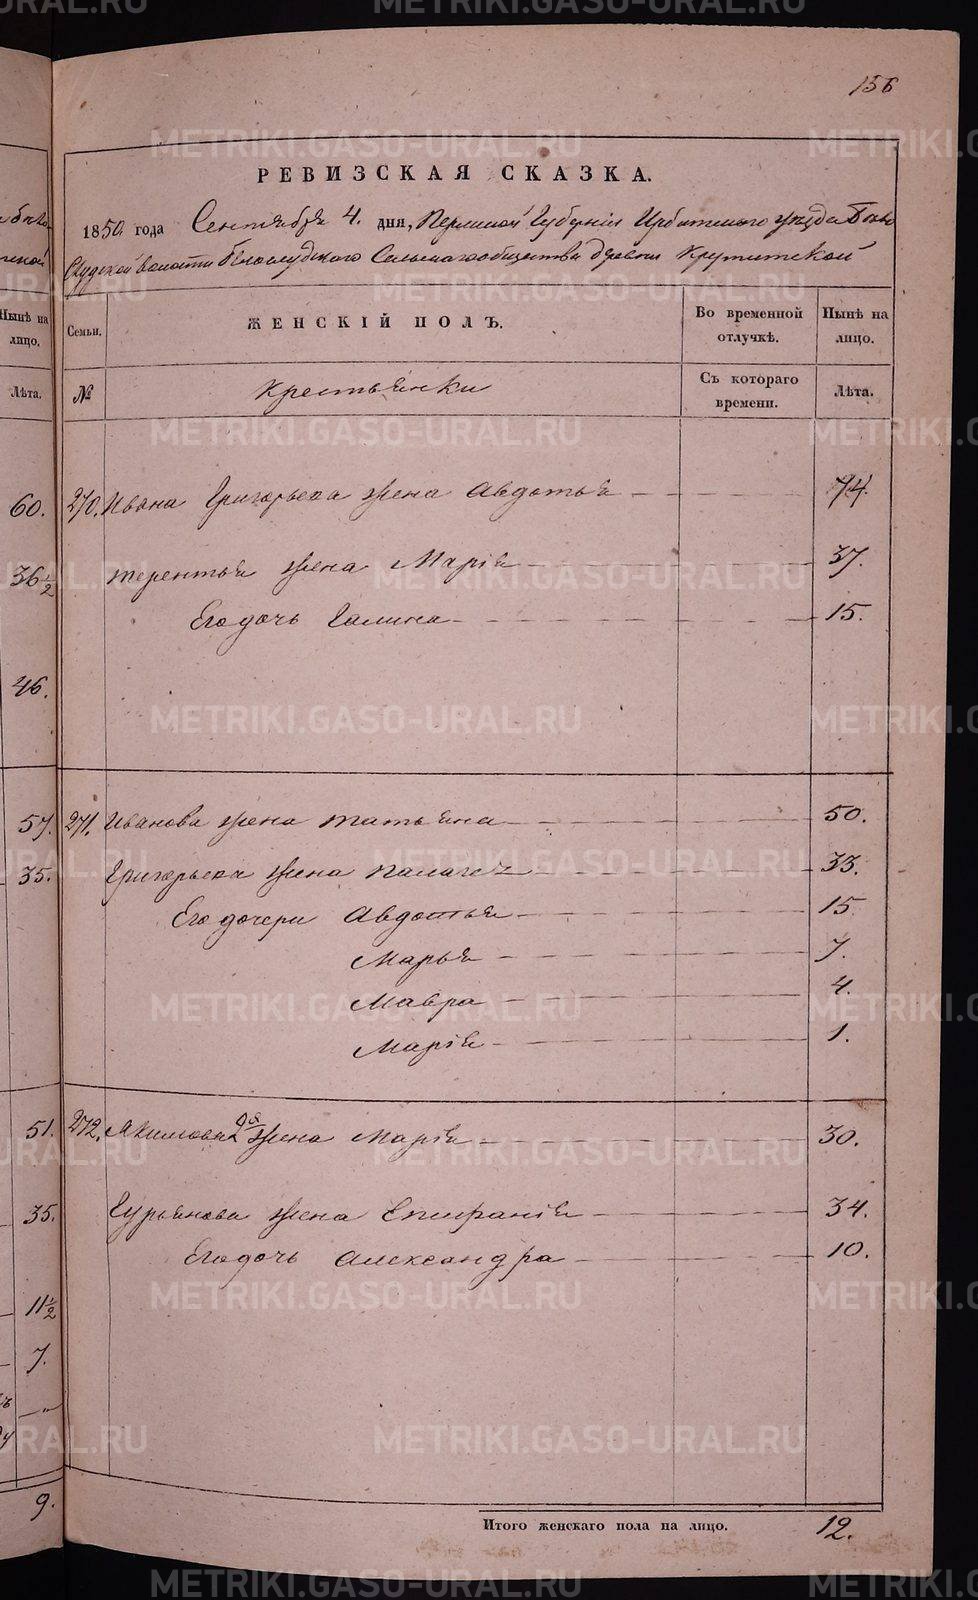 156
РЕВИЗСКАЯ СКАЗКА.
1850 года Сентября 4. дня, Пермской Губернiи Ирбитского уѣзда Бѣло
слудской волости Бѣлослудского Сельскагообщества деревни Крутитской
Семьи. ЖЕНСКІЙ ПОЛЪ. Во временной отлучкѣ. Нынѣ на лицо.
№ Крестьянки Съ котораго времени. Лѣта.
270. Ивана Григорьева жена Авдотья 74.
Терентья жена Марiя 37.
Его дочь Галина 15.
271. Иванова жена Татьяна 50.
Григорьева жена Палагея 33.
Его дочери Авдотья 15
Марья 7.
Мавра 4.
Марiя 1.
272. Якимова жена Марiя 30.
Гурьянова жена Епифанiя 34.
Его дочь Александра 10.
Итого женскаго пола на лицо. 12.
Нынѣ на лицо.
Лѣта.
60.
36 1/2
46.
57.
35.
51.
35.
11 1/2
7.
9.
METRIKI.GASO-URAL.RU